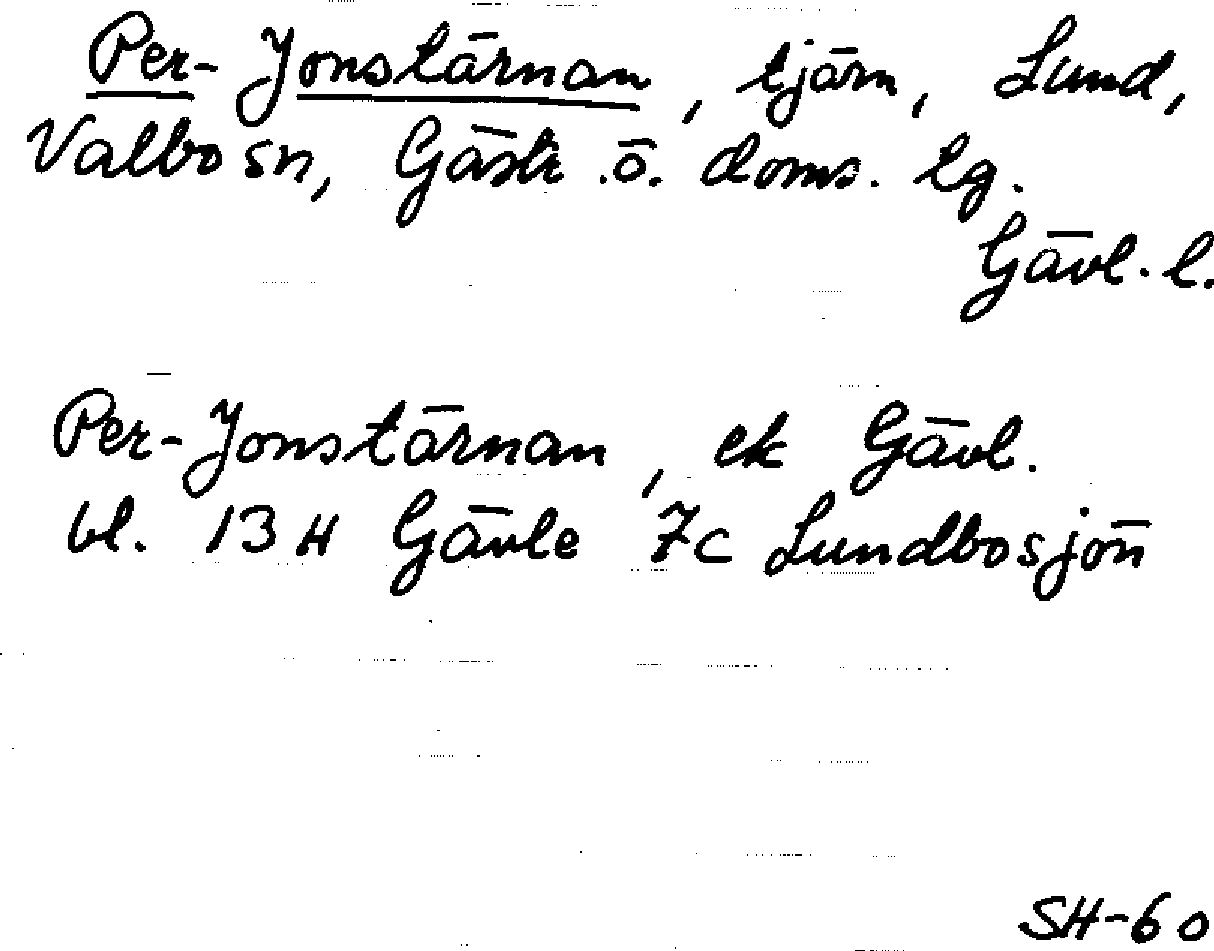 Per-Jonstärnan, tjärn, Lund,
Valbo sn, Gästr. ö. doms. lg.
Gävl. l.
Per-Jonstärnan, ek Gävl.
bl. 13 H Gävle 7c Lundbosjön
SH-60